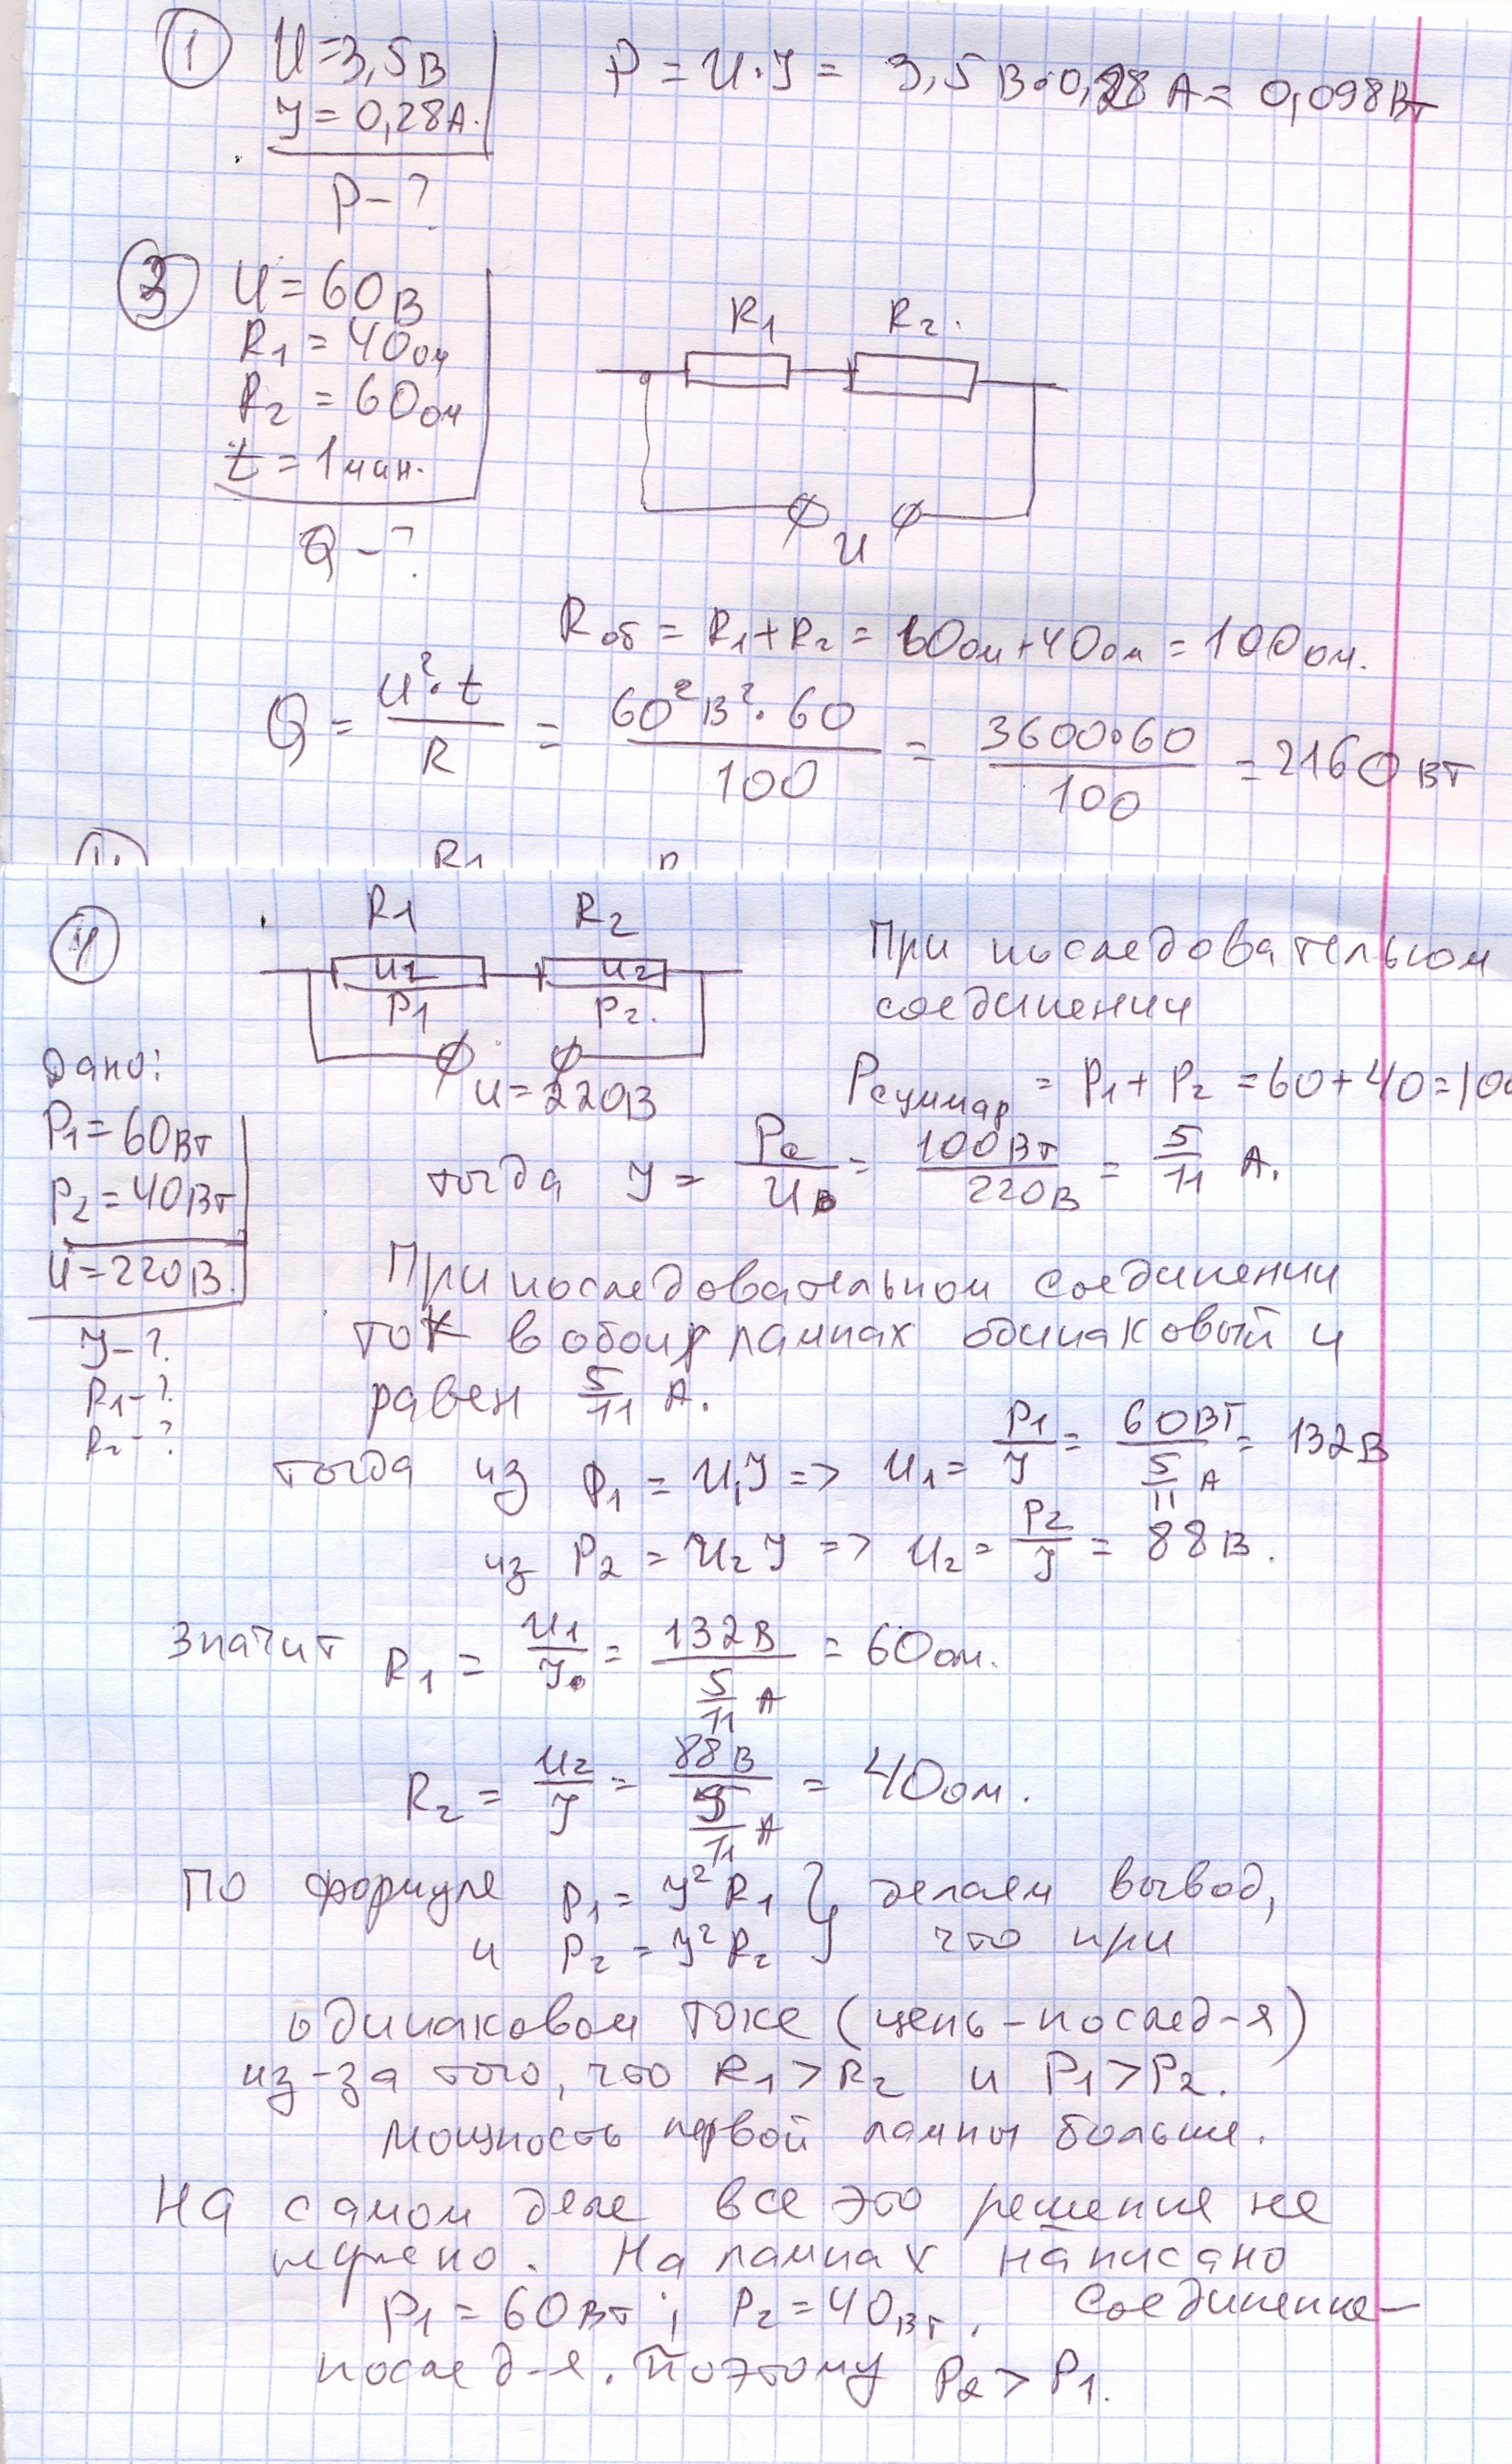 ① U=3,5В P = U·J = 3,5В·0,28А = 0,098Вт
J = 0,28А.
P-?
③ U=60В
R1 = 40ом
R2 = 60ом
t = 1мин.
Q-?
R1 R2.
U
Rоб = R1+R2 = 60ом+40ом = 100ом.
Q = U²·t/R = 60²В²·60/100 = 3600·60/100 = 2160вт
R1
④ R1 R2
U1 U2
P1 P2.
U=220В
При последовательном
соединении
Pсуммар = P1+P2 = 60+40=100
Дано:
P1=60Вт
P2=40Вт
U=220В.
J-?
R1-?
R2-?
тогда J = Pс/U = 100Вт/220В = 5/11 А.
При последовательном соединении
ток в обоих лампах одинаковый и
равен 5/11 А.
тогда из P1 = U1J => U1= P1/J = 60ВТ/5/11 А = 132В
из P2 = U2J => U2= P2/J = 88В.
Значит R1 = U1/J = 132В/5/11 А = 60ом.
R2 = U2/J = 88В/5/11 А = 40ом.
По формуле P1 = J²R1 } делаем вывод,
и P2 = J²R2 что при
одинаковом токе (цепь-послед-я)
из-за того, что R1>R2 и P1>P2.
Мощность первой лампы больше.
На самом деле все это решение не
нужно. На лампах написано
P1=60Вт; P2=40Вт. Соединение-
послед-е. Поэтому P2>P1.